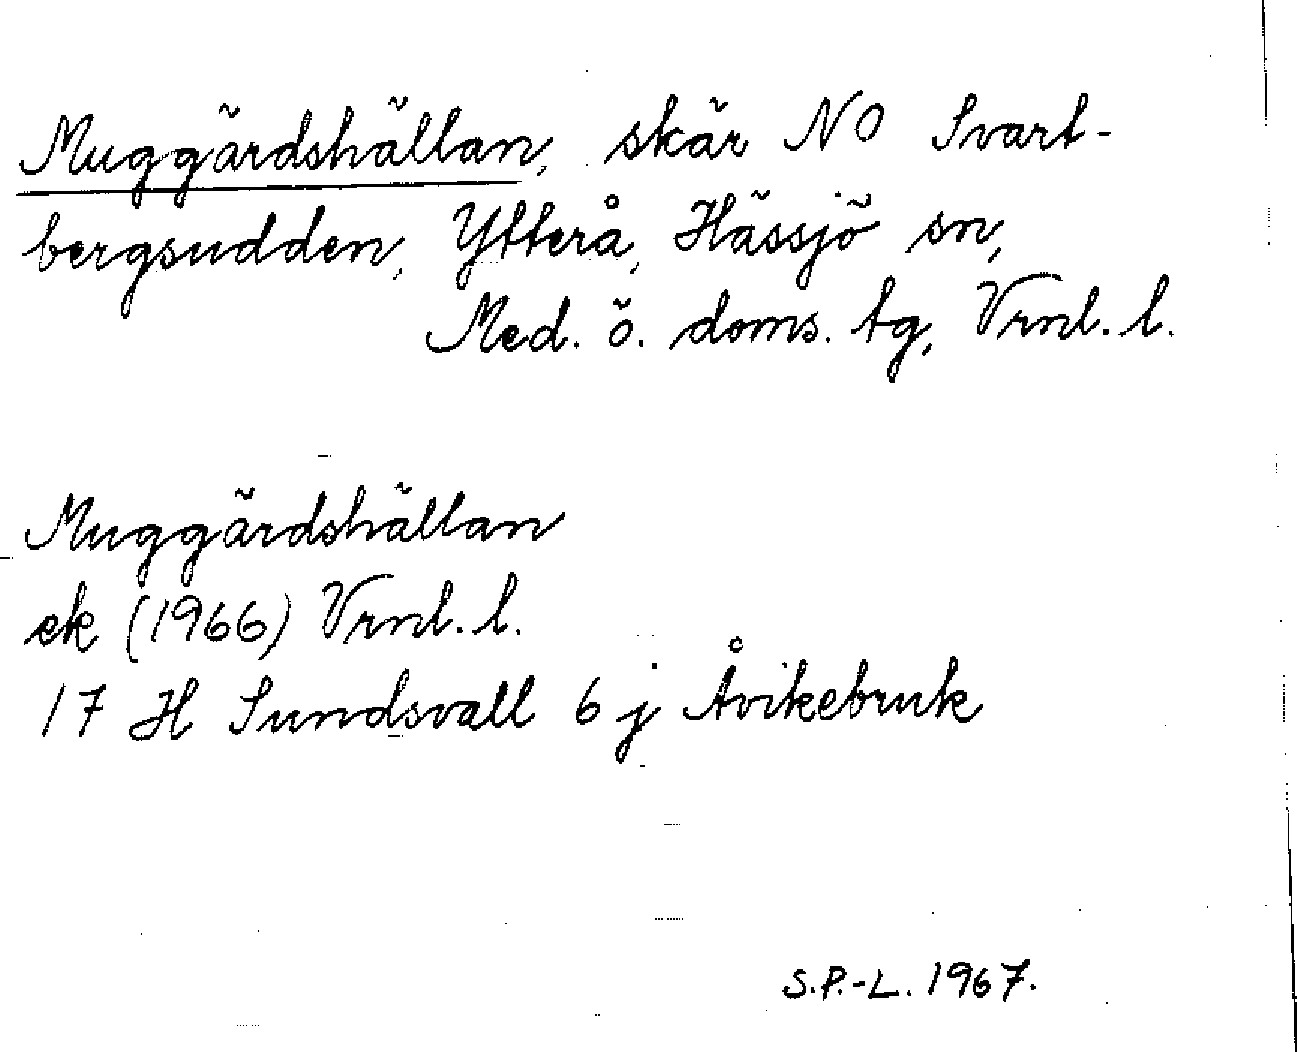 Muggärdshällan, skär NO Svart-
bergsudden, Ytterå, Hässjö sn,
Med. ö. doms. tg, Vrnl. l.
Muggärdshällan
ek (1966) Vrnl. l.
17 H Sundsvall 6 j Åvikebruk
S.P.-L. 1967.